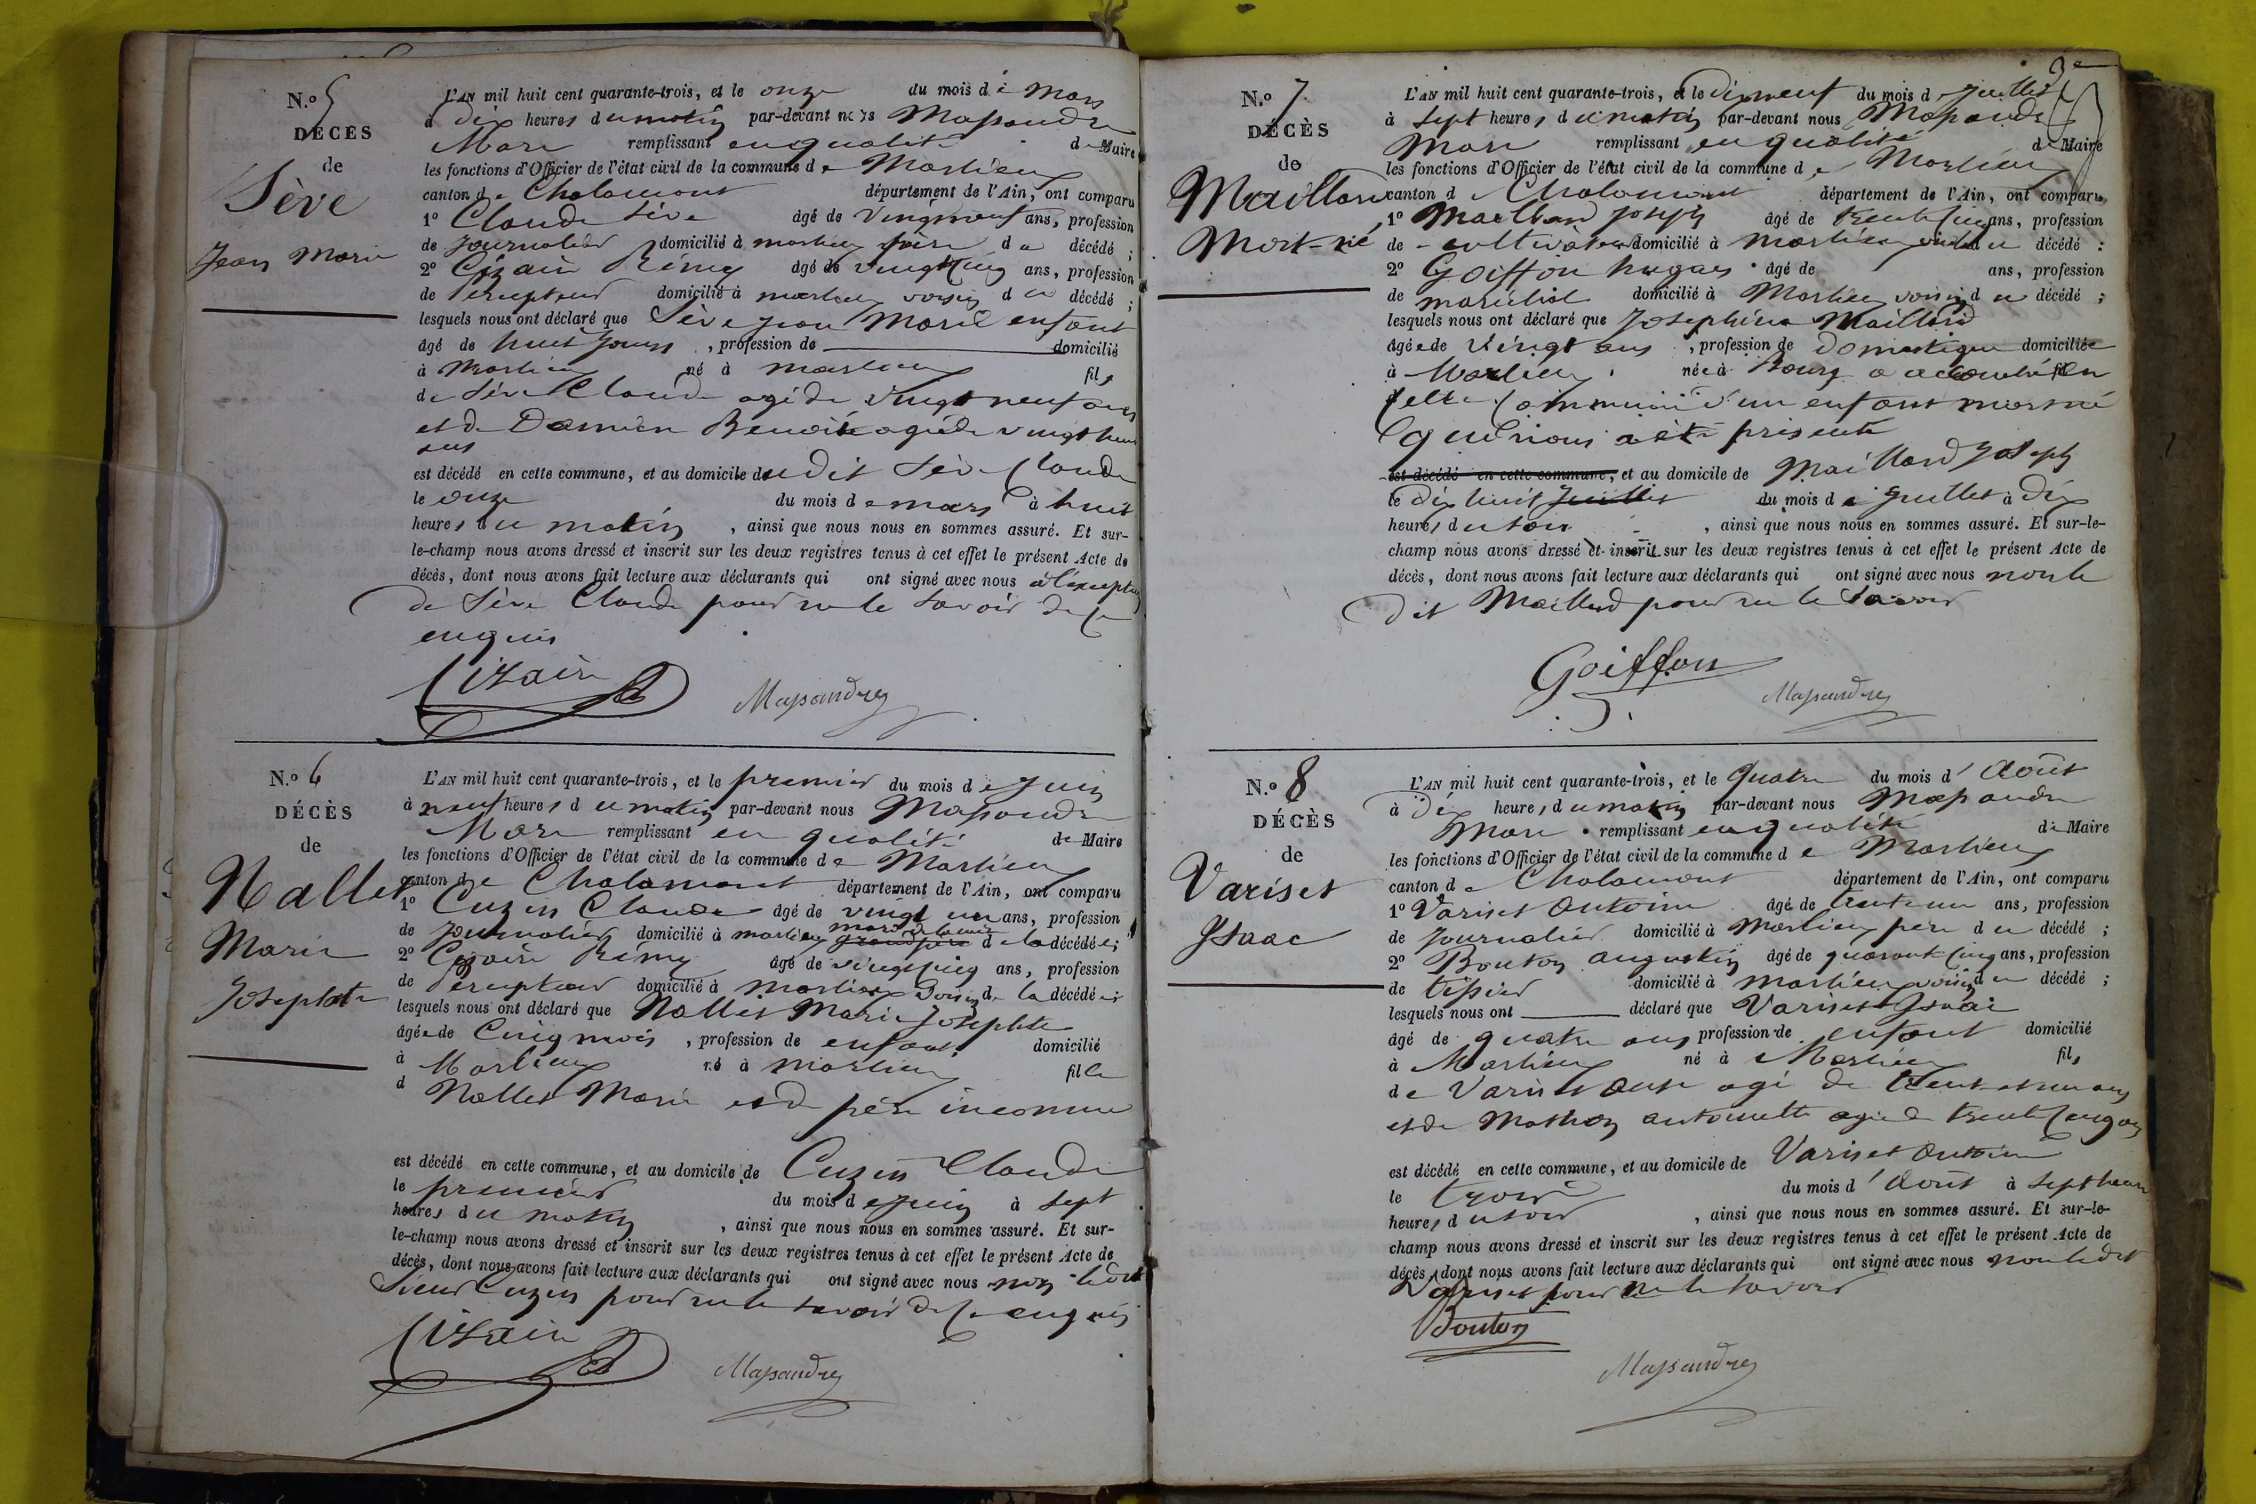 N.o 5
DÉCÈS
de
Sève
Jean Marie
L'AN mil huit cent quarante-trois, et le onze du mois de Mars
à dix heures du matin par-devant nous Massandre
Marc remplissant en qualité de Maire
les fonctions d'Officier de l'état civil de la commune de Marlieux
canton de Chalamont département de l'Ain, ont comparu
1o Claude Sève âgé de vingt neuf ans, profession
de journalier domicilié à marlieux père du décédé ;
2o Cizain Rémy âgé de vingt cinq ans, profession
de percepteur domicilié à marlieux voisin du décédé ;
lesquels nous ont déclaré que Sève jean Marie enfant
âgé de huit jours , profession de domicilié
à Marlieux né à marlieux fils
de Sève Claude agé de vingt neuf ans
et de Damien Benoite agée de vingt huit
ans
est décédé en cette commune, et au domicile du dit Sève Claude
le onze du mois de mars à huit
heures du matin , ainsi que nous nous en sommes assuré. Et sur-
le-champ nous avons dressé et inscrit sur les deux registres tenus à cet effet le présent Acte de
décès, dont nous avons fait lecture aux déclarants qui ont signé avec nous à l'exception
de Sève Claude pour ne le savoir de ce
enquis
Cizain
Massandre
N.o 6
DÉCÈS
de
Nallet
Marie
Josephte
L'AN mil huit cent quarante-trois, et le premier du mois de Juin
à neuf heures du matin par-devant nous Massandre
Marc remplissant en qualité de Maire
les fonctions d'Officier de l'état civil de la commune de Marlieux
canton de Chalamont département de l'Ain, ont comparu
1o Cuzin Claude âgé de vingt un ans, profession
de journalier domicilié à marlieux grand père de la décédée ;
2o Cizain Rémy âgé de vingt cinq ans, profession
de percepteur domicilié à marlieux voisin de la décédée ;
lesquels nous ont déclaré que Nallet Marie Josephte
âgée de Cinq mois , profession de enfant domicilié
à Marlieux né à marlieux fille
d Nallet Marie et de père inconnu
est décédé en cette commune, et au domicile de Cuzin Claude
le premier du mois de juin à sept
heures du matin , ainsi que nous nous en sommes assuré. Et sur-
le-champ nous avons dressé et inscrit sur les deux registres tenus à cet effet le présent Acte de
décès, dont nous avons fait lecture aux déclarants qui ont signé avec nous non ledit
Sieur Cuzin pour ne le savoir de ce enquis
Cizain
Massandre
3e
N.o 7
DÉCÈS
de
Maillard
Mort-né
L'AN mil huit cent quarante-trois, et le dix neuf du mois de Juillet
à sept heures du matin par-devant nous Massandre
Marc remplissant en qualité de Maire
les fonctions d'Officier de l'état civil de la commune de Marlieux
canton de Chalamont département de l'Ain, ont comparu
1o Maillard Joseph âgé de trente cinq ans, profession
de cultivateur domicilié à marlieux du décédé ;
2o Goiffon hugues âgé de ans, profession
de maréchal domicilié à Marlieux voisin du décédé ;
lesquels nous ont déclaré que Josephine Maillard
âgée de vingt ans , profession de domestique domiciliée
à Marlieux née à Bourg a accouché en
cette commune d'un enfant mort né
qui nous a été présenté
est décédé en cette commune, et au domicile de Maillard Joseph
le dix huit juillet du mois de juillet à dix
heures du soir , ainsi que nous nous en sommes assuré. Et sur-le-
champ nous avons dressé et inscrit sur les deux registres tenus à cet effet le présent Acte de
décès, dont nous avons fait lecture aux déclarants qui ont signé avec nous non le
dit Maillard pour ne le savoir
Goiffon
Massandre
N.o 8
DÉCÈS
de
Variset
Isaac
L'AN mil huit cent quarante-trois, et le quatre du mois d'Août
à dix heures du matin par-devant nous Massandre
Marc remplissant en qualité de Maire
les fonctions d'Officier de l'état civil de la commune de Marlieux
canton de Chalamont département de l'Ain, ont comparu
1o Variset antoine âgé de trente un ans, profession
de Journalier domicilié à Marlieux père du décédé ;
2o Bouton augustin âgé de quarante cinq ans, profession
de tissier domicilié à marlieux voisin du décédé ;
lesquels nous ont déclaré que Variset Isaac
âgé de quatre ans profession de enfant domicilié
à Marlieux né à Marlieux fils
de Variset ant. agé de trente et un ans
et de Mathon antoinette agée de trente cinq ans
est décédé en cette commune, et au domicile de Variset antoine
le trois du mois d'Août à sept heures
heures du soir , ainsi que nous nous en sommes assuré. Et sur-le-
champ nous avons dressé et inscrit sur les deux registres tenus à cet effet le présent Acte de
décès, dont nous avons fait lecture aux déclarants qui ont signé avec nous non le dit
Variset pour ne le savoir
Bouton
Massandre